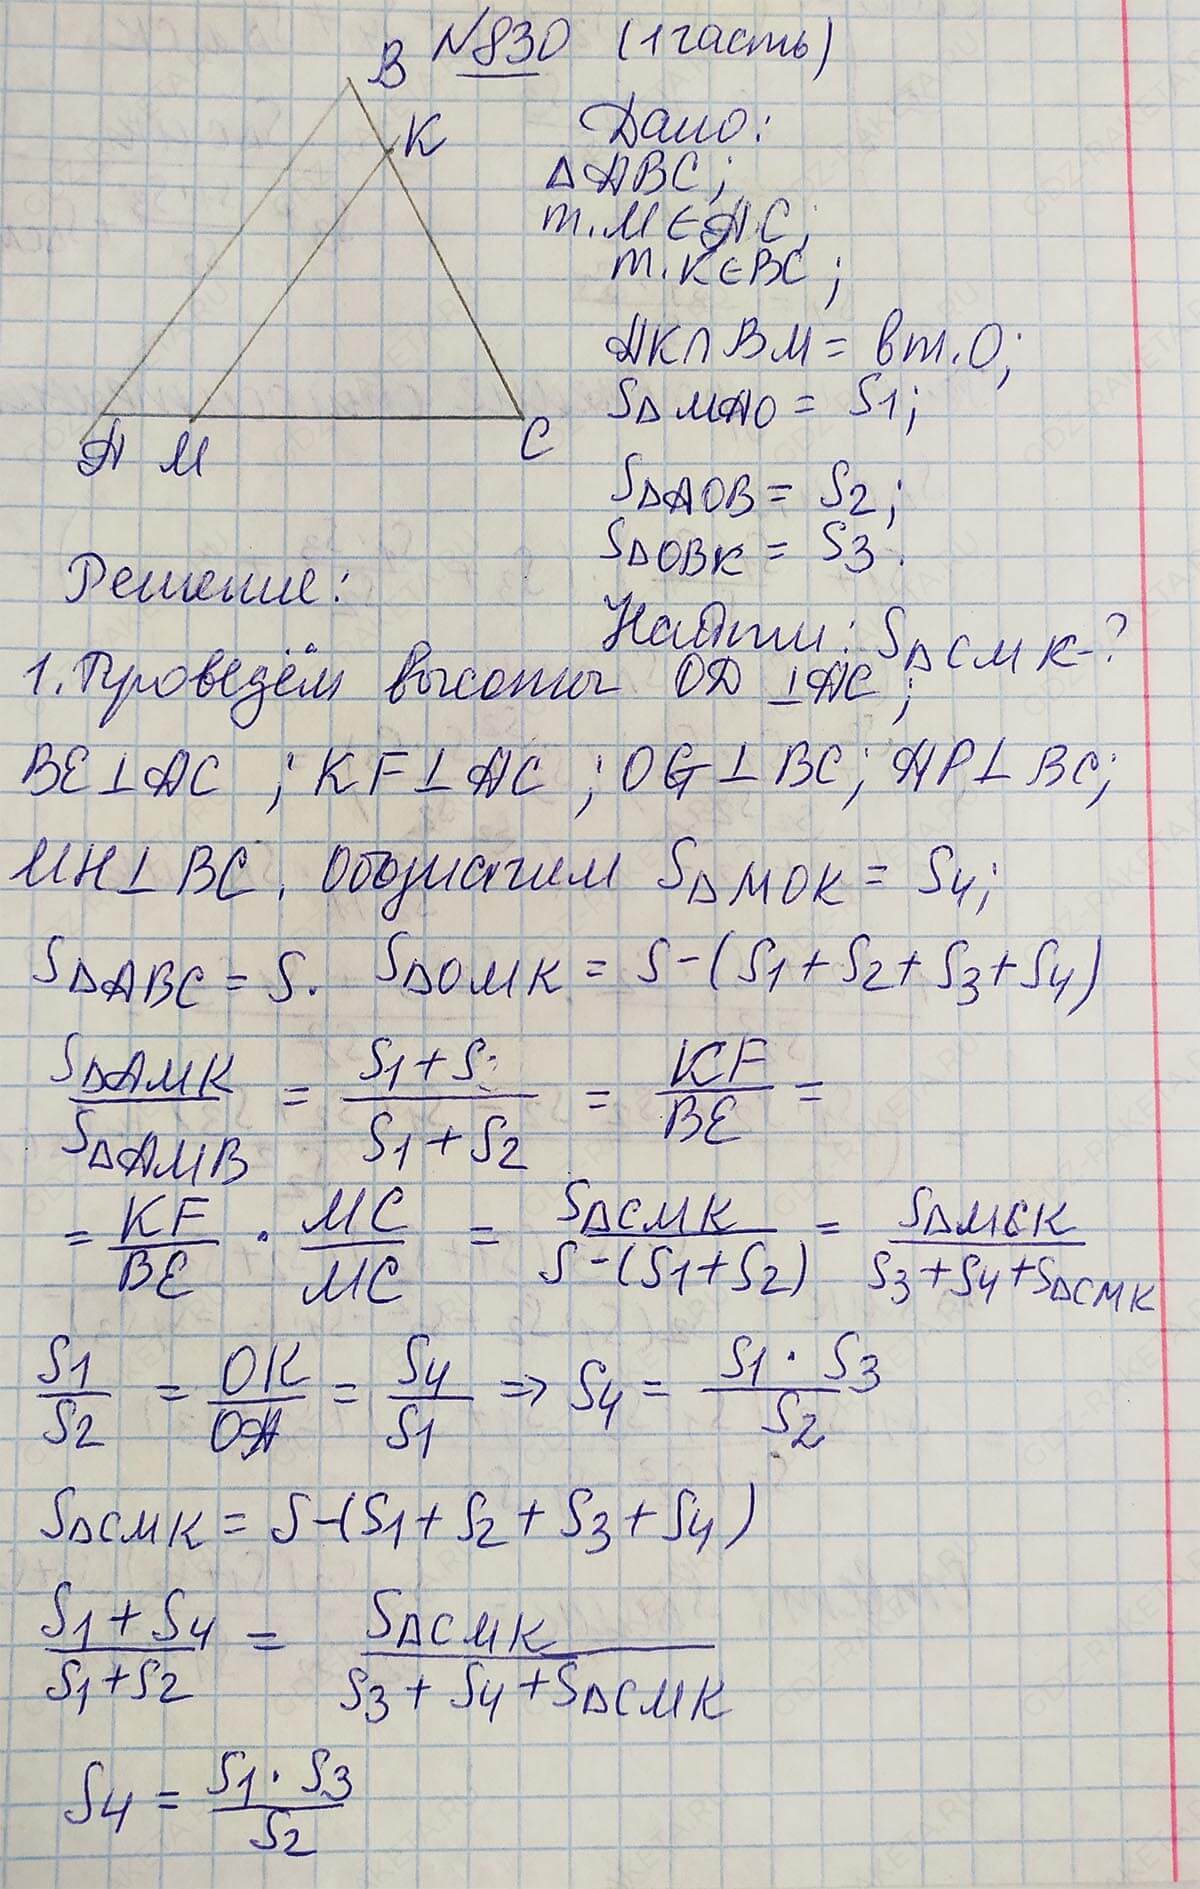 №830 (1 часть)
B
K
A M
C
Дано:
△ABC;
т.M∈AC;
т.K∈BC;
AK∩BM = в т.O;
S△MAO = S1;
S△AOB = S2;
S△OBK = S3.
Найти: S△CMK-?
Решение:
1. Проведём высоты OD ⊥AC;
BE⊥AC; KF⊥AC; OG⊥BC; AP⊥BC;
MH⊥BC. Обозначим S△MOK = S4;
S△ABC = S. S△OMK = S-(S1+S2+S3+S4)
S△AMK/S△AMB = (S1+S)/(S1+S2) = KF/BE =
= KF/BE · MC/MC = S△CMK/(S-(S1+S2)) = S△MCK/(S3+S4+S△CMK)
S1/S2 = OK/OA = S4/S1 => S4 = (S1·S3)/S2
S△CMK = S-(S1+S2+S3+S4)
(S1+S4)/(S1+S2) = S△CMK/(S3+S4+S△CMK)
S4 = (S1·S3)/S2